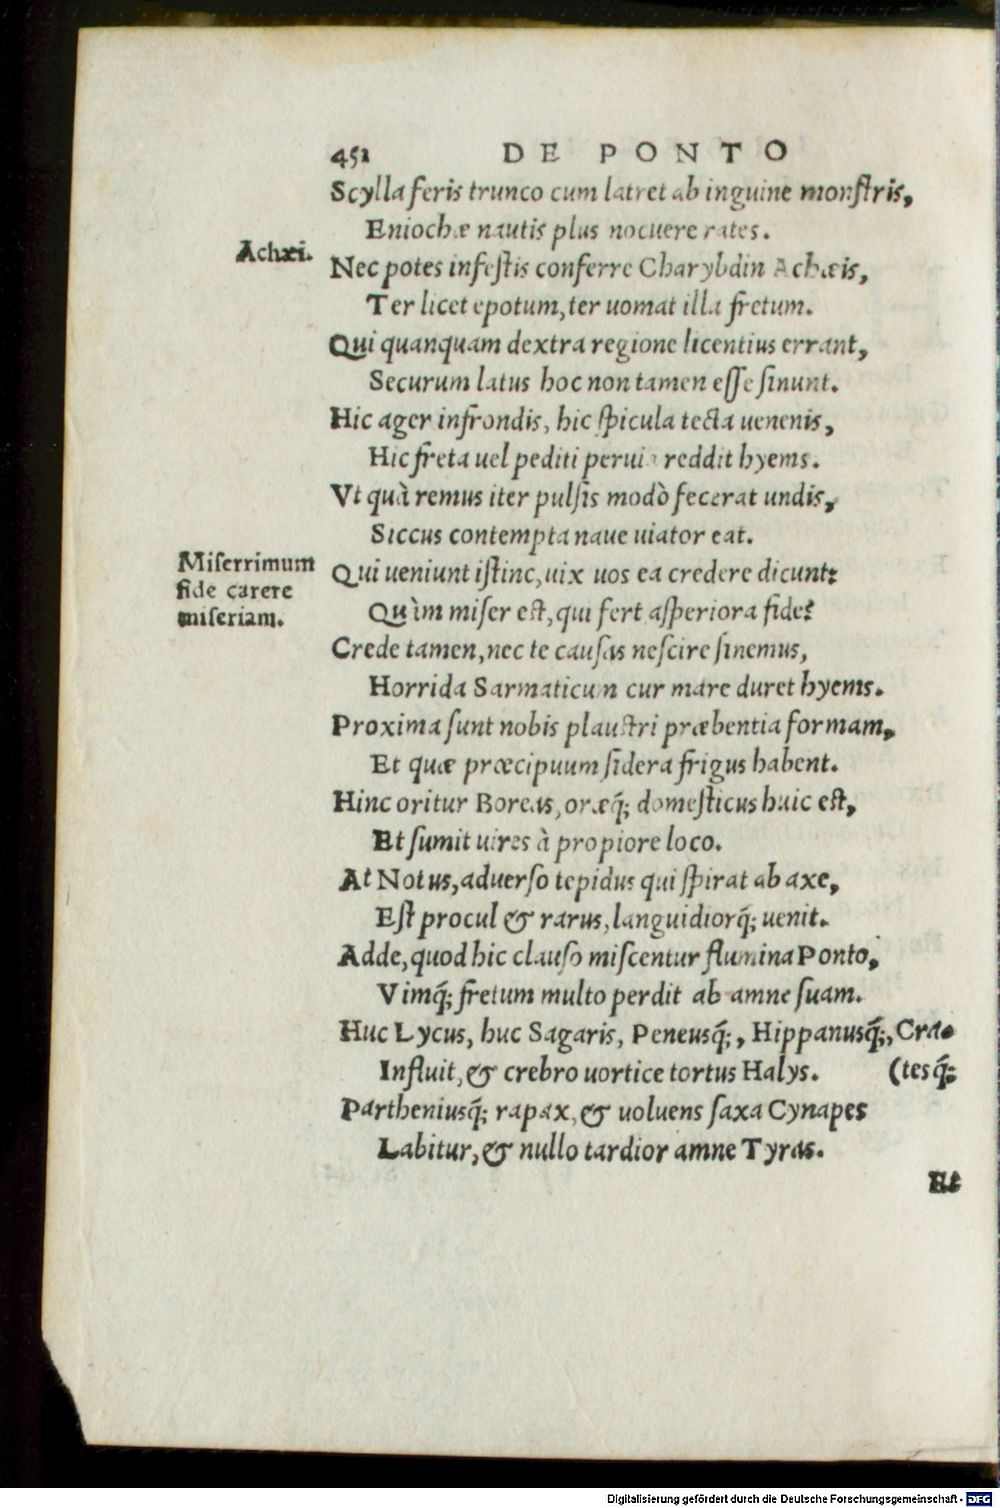 451 DE PONTO
Scylla feris trunco cum latret ab inguine monſtris,
Eniochæ nautis plus nocuere rates.
Achæi.
Nec potes infeſtis conferre Charybdin Achæis,
Ter licet epotum, ter uomat illa fretum.
Qui quanquam dextra regione licentius errant,
Securum latus hoc non tamen eſſe ſinunt.
Hic ager infrondis, hic ſpicula tecta uenenis,
Hic freta uel pediti peruia reddit hyems.
Vt quà remus iter pulſis modò fecerat undis,
Siccus contempta naue uiator eat.
Miſerrimum
fide carere
miſeriam.
Qui ueniunt iſtinc, uix uos ea credere dicunt:
Quàm miſer eſt, qui fert aſperiora fide?
Crede tamen, nec te cauſas neſcire ſinemus,
Horrida Sarmaticum cur mare duret hyems.
Proxima ſunt nobis plauſtri præbentia formam,
Et quæ præcipuum ſidera frigus habent.
Hinc oritur Boreas, oræq́; domeſticus huic eſt,
Et ſumit uires à propiore loco.
At Notus, aduerſo tepidus qui ſpirat ab axe,
Eſt procul & rarus, languidiorq́; uenit.
Adde, quod hic clauſo miſcentur flumina Ponto,
Vimq́; fretum multo perdit ab amne ſuam.
Huc Lycus, huc Sagaris, Peneusq́;, Hippanusq́;, Cra-
Influit, & crebro uortice tortus Halys. (tesq́;
Partheniusq́; rapax, & uoluens ſaxa Cynapes
Labitur, & nullo tardior amne Tyras.
Et
Digitalisierung gefördert durch die Deutsche Forschungsgemeinschaft - DFG